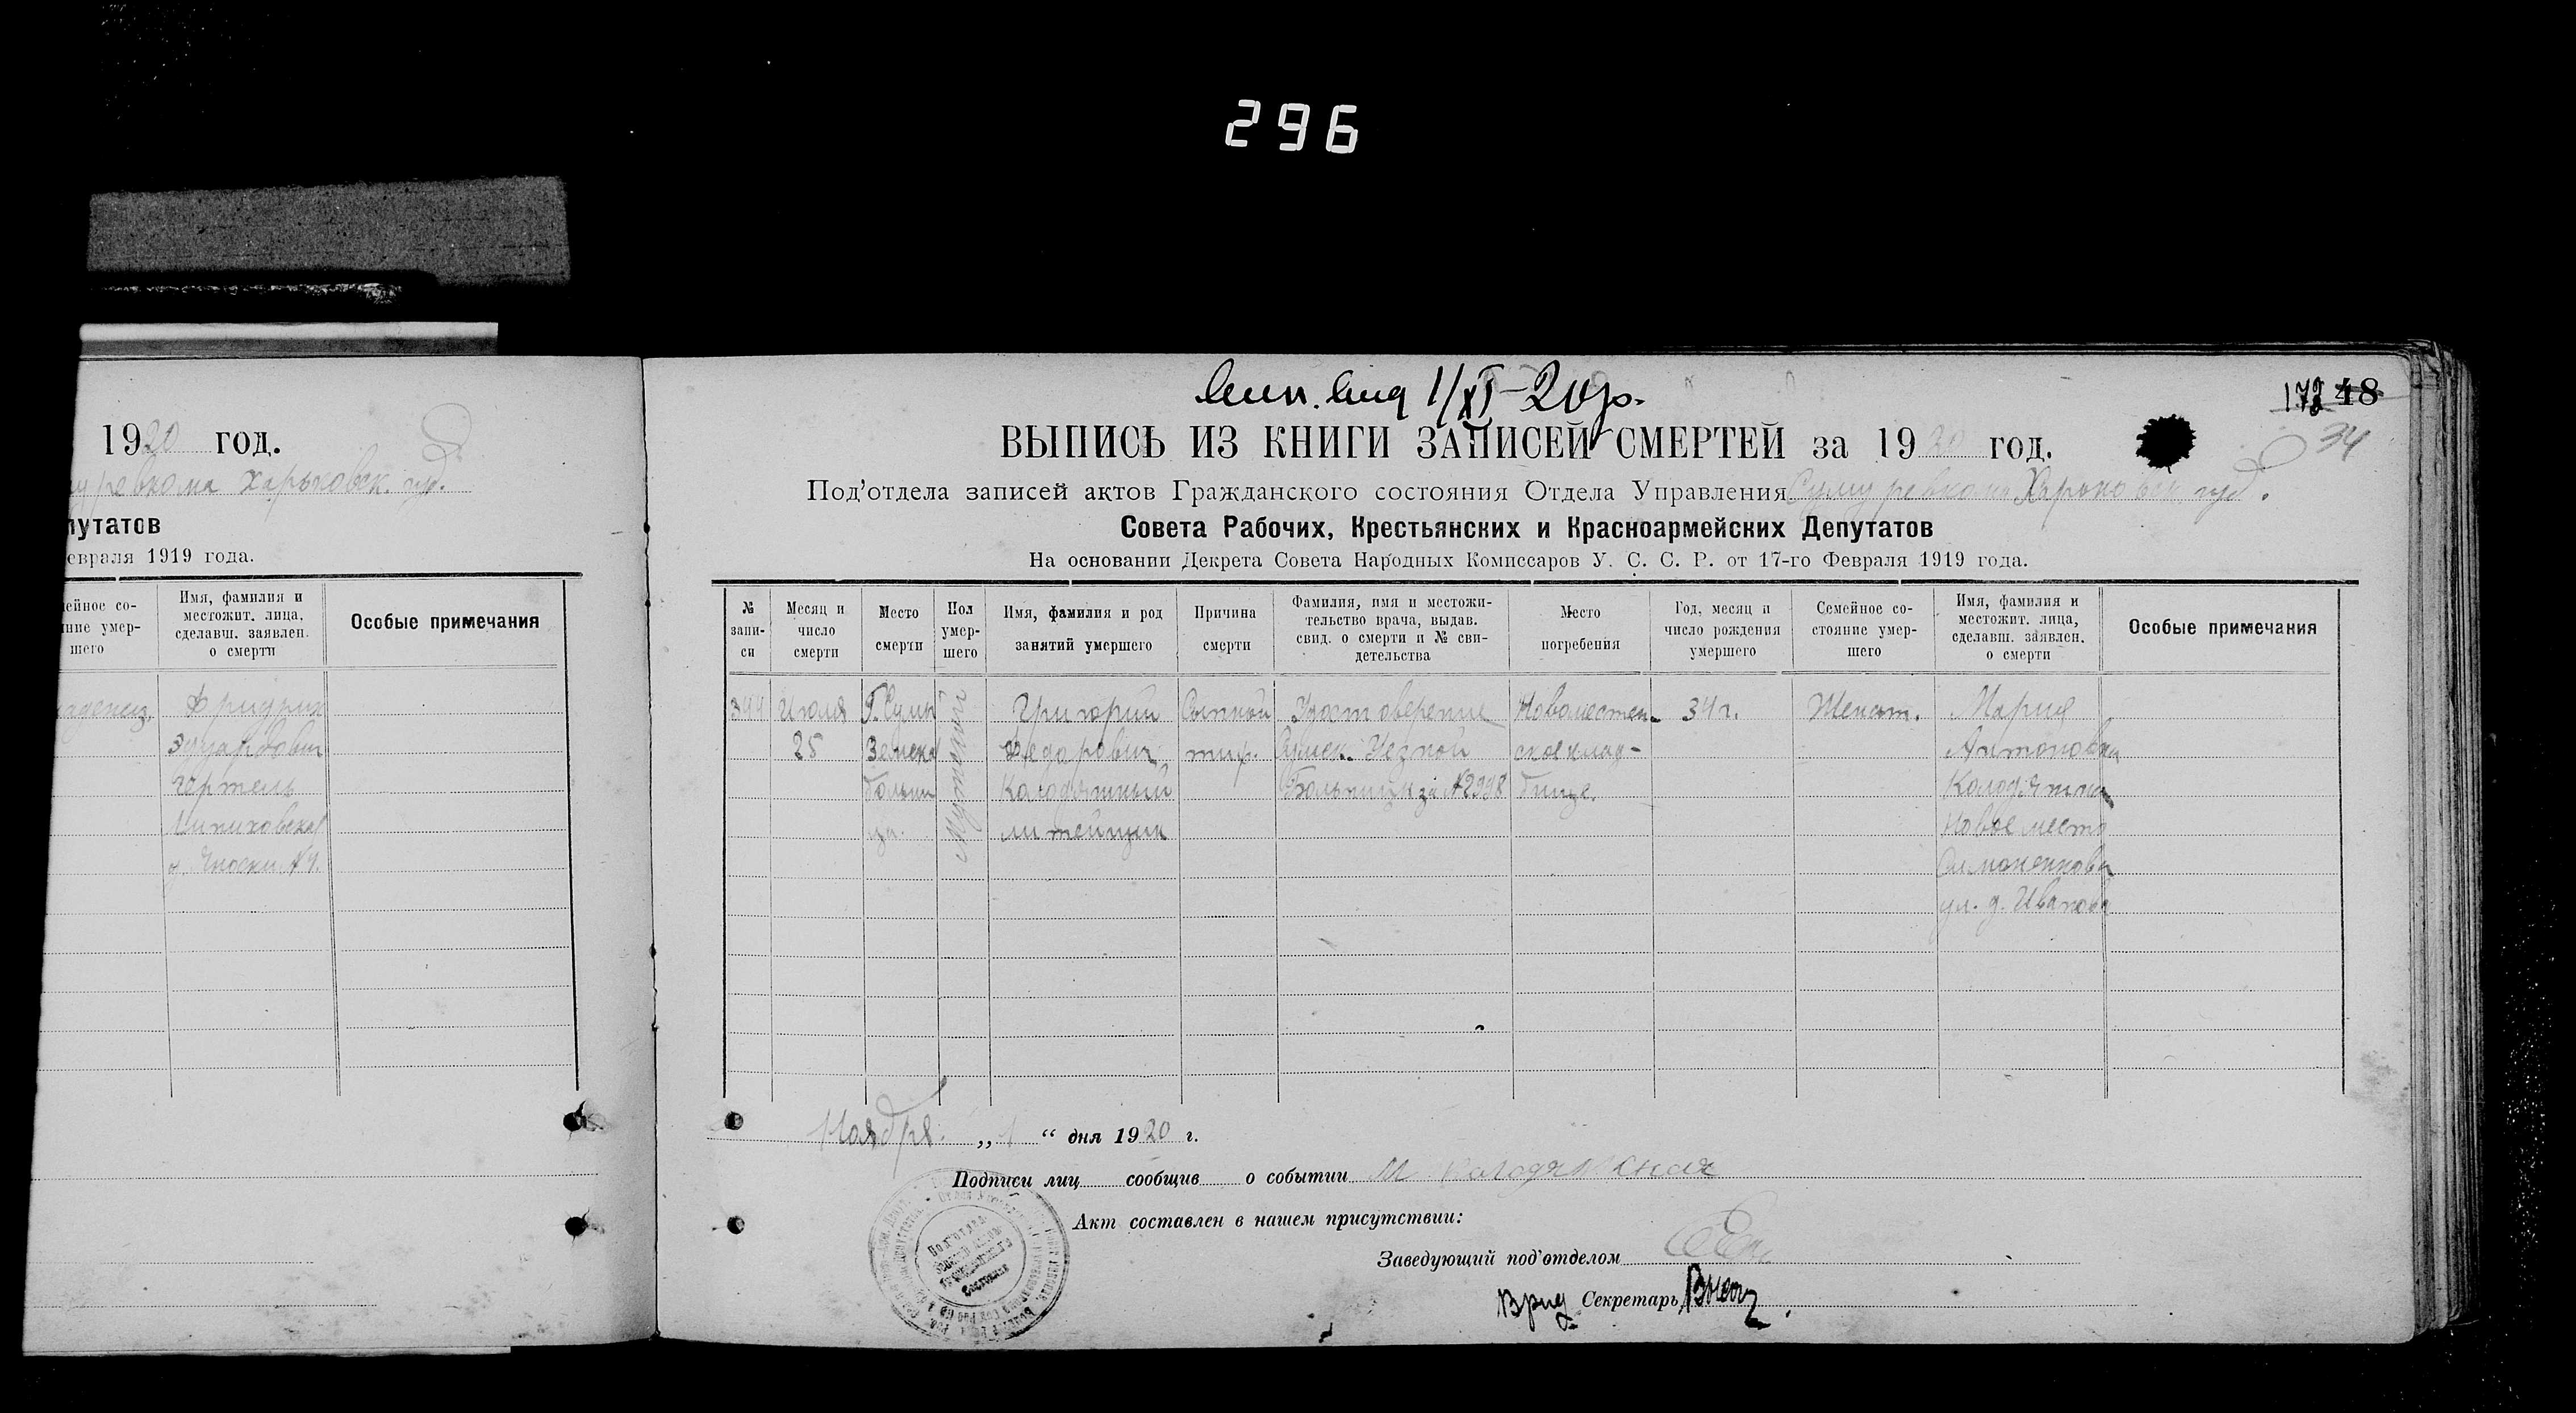 296
1920 год.
ревкома Харьковск. губ.
путатов
евраля 1919 года.
ейное со-
ние умер-
шего
Имя, фамилия и
местожит. лица,
сделавш. заявлен.
о смерти
Особые примечания
Фридрих
Эдуардович
Гертель
№ 4.
1/XI-20 р.
48
34
ВЫПИСЬ ИЗ КНИГИ ЗАПИСЕЙ СМЕРТЕЙ за 1920 год.
Под'отдела записей актов Гражданского состояния Отдела Управления Сумуревкома Харьковск губ.
Совета Рабочих, Крестьянских и Красноармейских Депутатов
На основании Декрета Совета Народных Комиссаров У. С. С. Р. от 17-го Февраля 1919 года.
№
запи-
си
Месяц и
число
смерти
Место
смерти
Пол
умер-
шего
Имя, фамилия и род
занятий умершего
Причина
смерти
Фамилия, имя и местожи-
тельство врача, выдав.
свид. о смерти и № сви-
детельства
Место
погребения
Год, месяц и
число рождения
умершего
Семейное со-
стояние умер-
шего
Имя, фамилия и
местожит. лица,
сделавш. заявлен.
о смерти
Особые примечания
344
Июля
25
Г. Сумы
Земска
больни
ца.
Мужской
Григорий
Федорович
Колодяжный
литейщик
Сыпной
тиф.
Удостоверение
Сумск. Уездной
Больницы за № 2998
Новоместен-
ское клад-
бище.
34 г.
Женат.
Мария
Антоновна
Колодяжна
Новое место
Симоненкова
ул. д. Иванова
Ноября „1“ дня 1920 г.
Подписи лиц сообщив о событии М Колодяжная
Акт составлен в нашем присутствии:
Заведующий под'отделом
Врид Секретарь